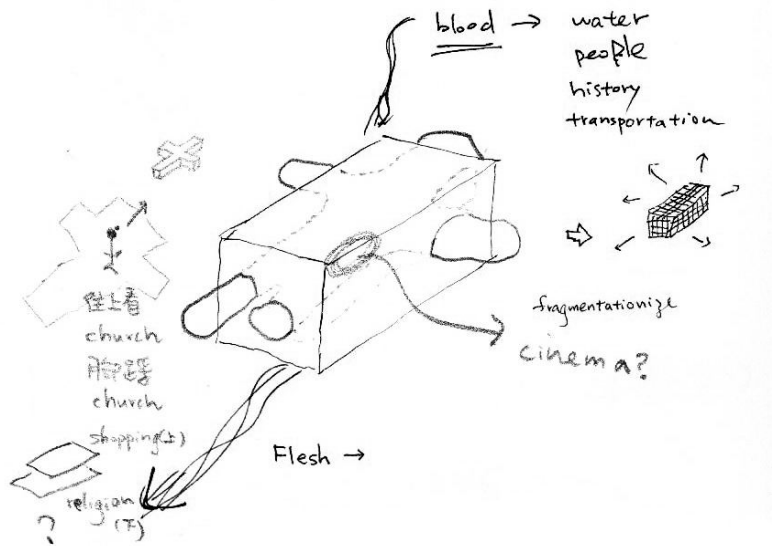 blood → water
people
history
transportation
fragmentationize
cinema?
church
church
shopping(上)
religion
(下)
?
Flesh →